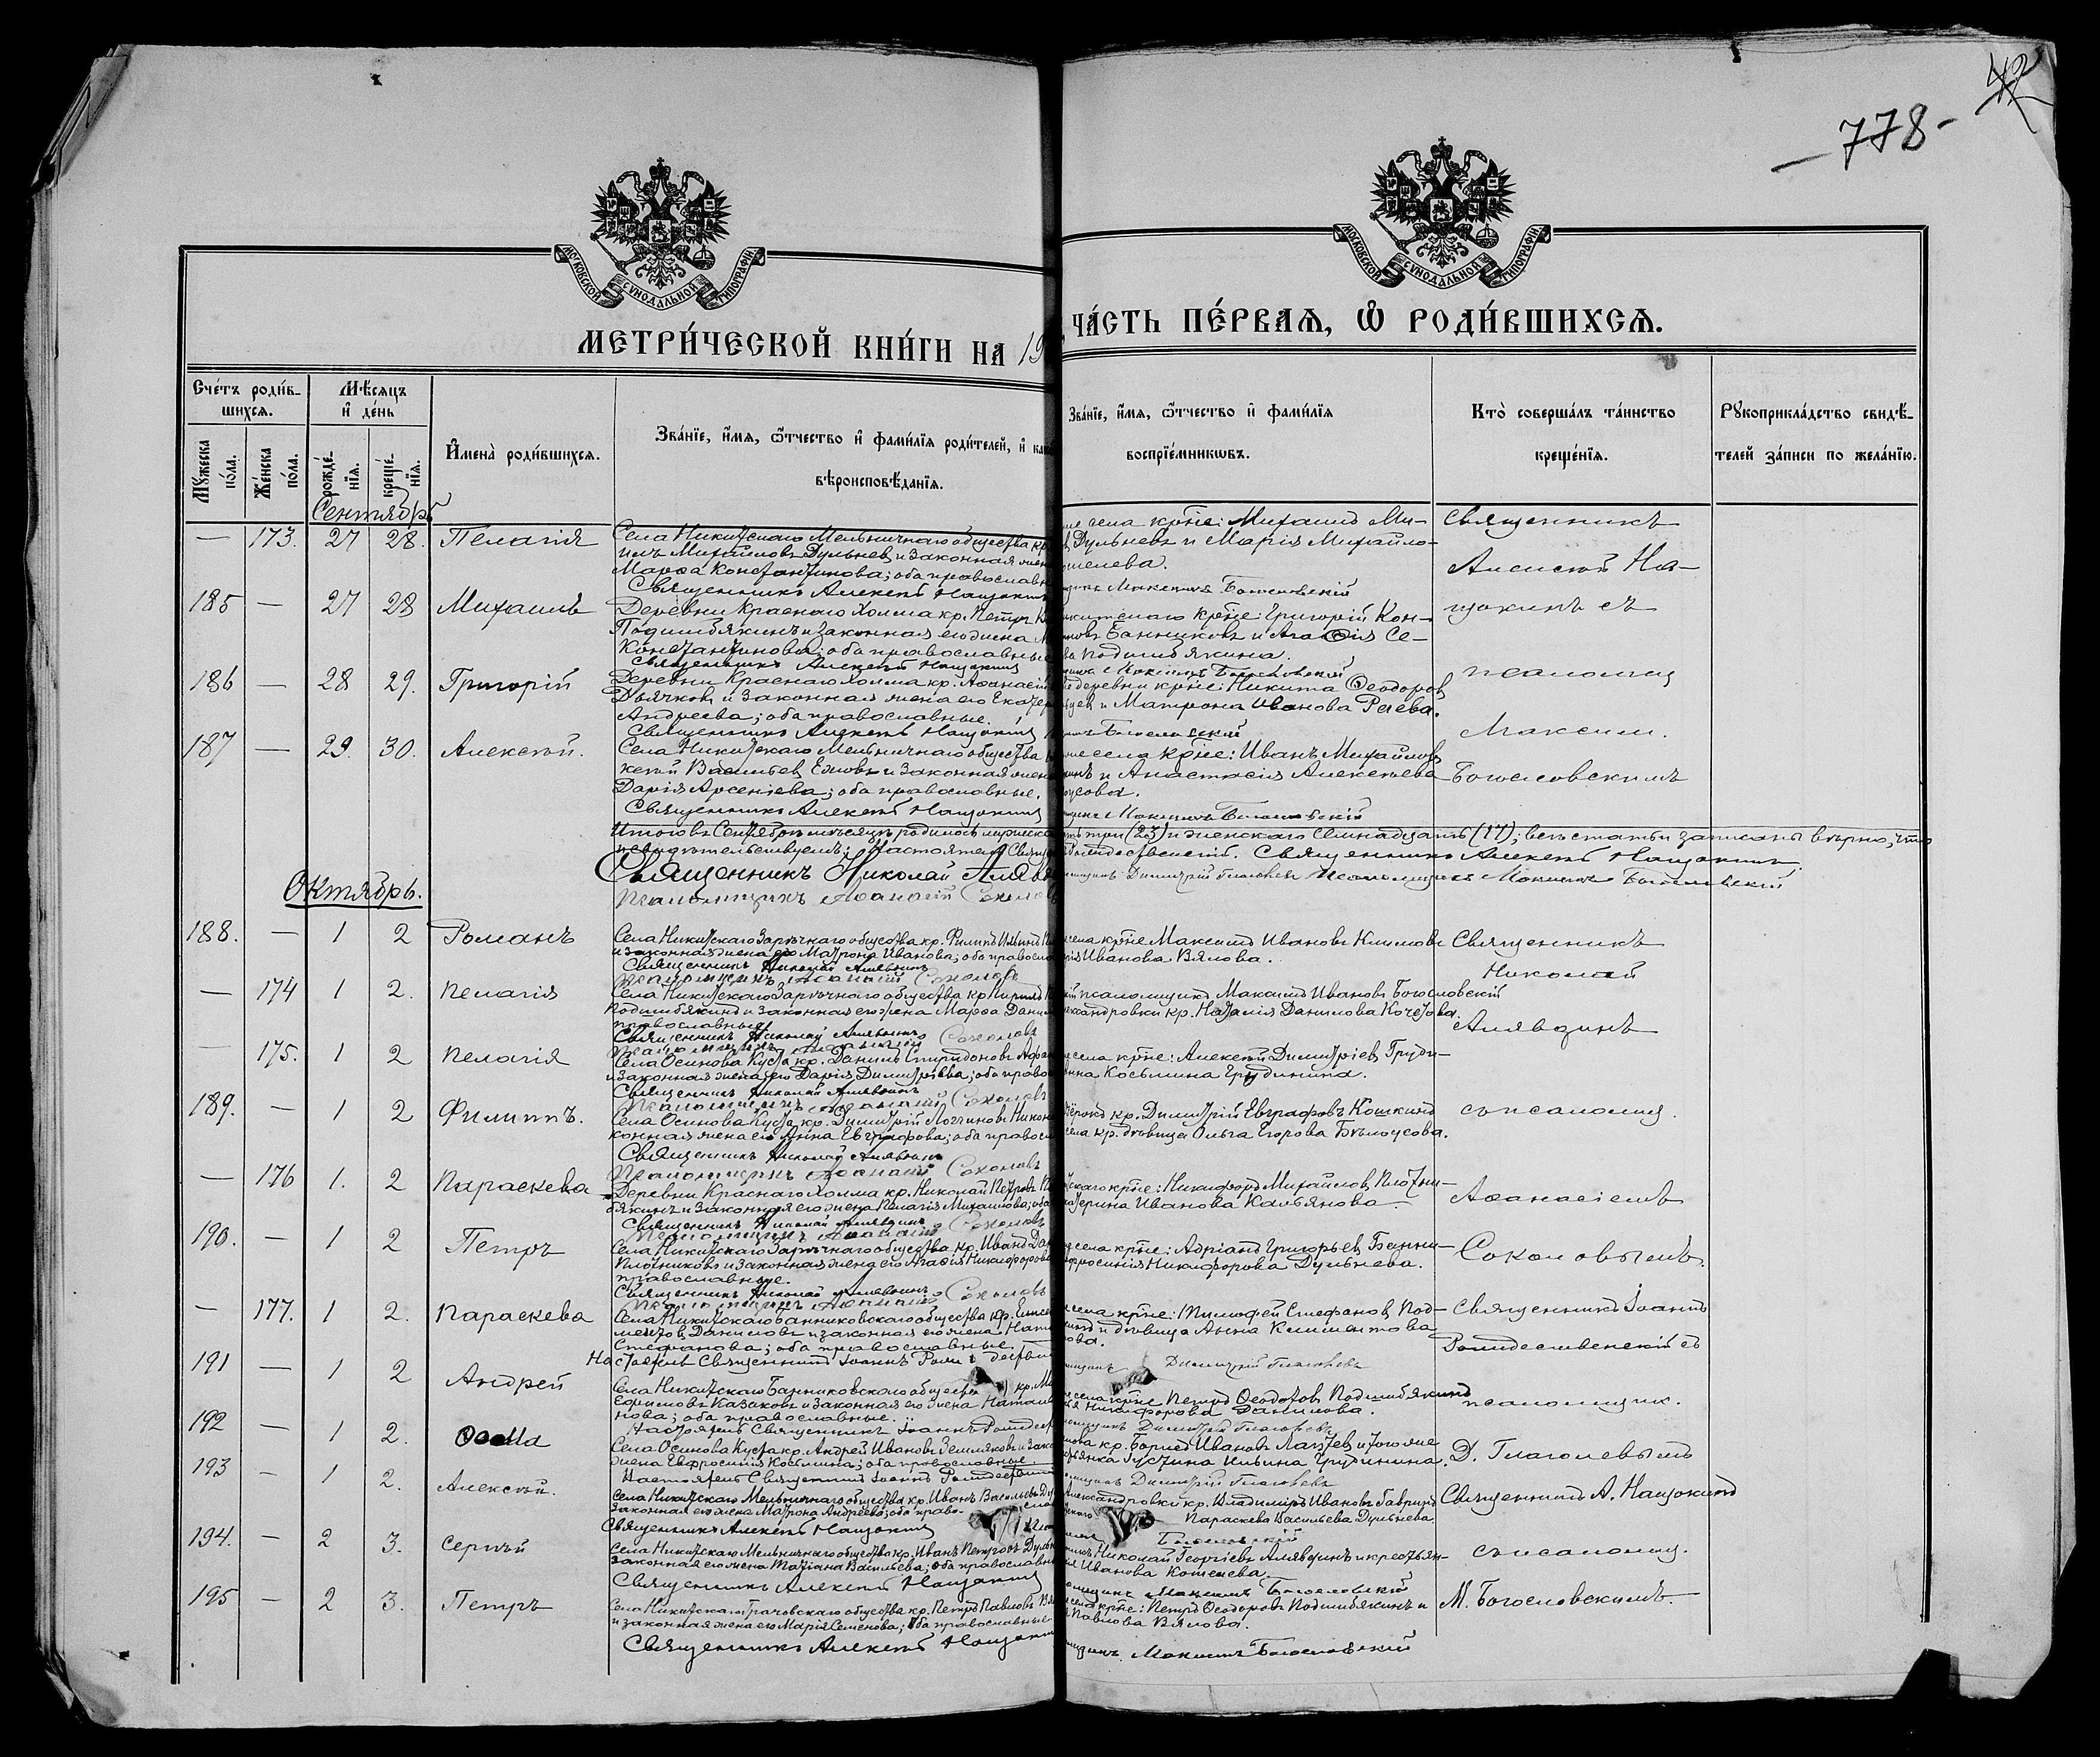 42
-778-
МОСКОВСКОЙ СѴНОДАЛЬНОЙ ТИПОГРАФІИ
МОСКОВСКОЙ СѴНОДАЛЬНОЙ ТИПОГРАФІИ
МЕТРИ́ЧЕСКОЙ КНИ́ГИ НА 19
ЧА́СТЬ ПЕ́РВАЯ, Ѡ РОДИ́ВШИХСЯ.
Сче́тъ роди́вшихся.
Мѣ́сяцъ и де́нь
Имена̀ роди́вшихся.
Зва́нїе, и́мя, ѻ҆́тчество и фами́лїя роди́телей, и како
вѣроисповѣ́данїя.
Зва́нїе, и́мя, ѻ҆́тчество и фами́лїя
воспрїе́мникѡвъ.
Кто̀ соверша́лъ та́инство
креще́нїя.
Рꙋкоприкла́дство свидѣ́-
телей за́писи по жела́нїю.
Мꙋ́жеска по́ла.
Же́нска по́ла.
рожде́нїя.
креще́нїя.
Сентябрь
— 173. 27 28. Пелагія
Села Никитскаго Мельничнаго общества кр
Михайловъ Дульневъ и законная жен
Марѳа Константинова; оба православн
Священникъ Алексѣй Нащокинъ
села кр‑не: Михаилъ Ми-
Дульневъ и Марія Михайло-
Максимъ Богословскій
Священникъ
Алексѣй На-
щокинъ съ
псаломщ
Максим.
Богословскимъ
185 — 27 28 Михаилъ
Деревни Краснаго Холма кр. Петръ К
Подшибякинъ и законная его жена М
Константинова; оба православные
Священникъ Алексѣй Нащокинъ
кр‑не: Григорій Кон-
Банниковъ и Агаѳія Се-
Подшибякина.
Богословскій
186 — 28 29. Григорій
Деревни Краснаго Холма кр. Аѳанасій
Дьячковъ и законная жена его Екатер
Андреева; оба православные.
Священникъ Алексѣй Нащокинъ
деревни кр‑не: Никита Ѳеодоров
и Матрона Иванова Раева.
Богословскій
187 — 29. 30. Алексѣй.
Села Никитскаго Мельничнаго общества
ксѣй Васильев Ежовъ и законная жен
Дарія Арсеніева; оба православные.
Священникъ Алексѣй Нащокинъ
села кр‑не: Иванъ Михайлов
и Анастасія Алексѣева
Максимъ Богословскій
Итого въ Сентябрѣ мѣсяцѣ родилось мужска
три (23) и женскаго семнадцать (17); всѣ статьи записаны вѣрно, что
свидѣтельствуемъ: Настоятель Свящ
Рождественскій. Священникъ Алексѣй Нащокинъ
Священникъ Николай Аляв
Димитрій Глаголевъ Псаломщикъ Максимъ Богословскій
Псаломщикъ Аѳанасій Соколов
Октябрь.
188. — 1 2 Романъ
Села Никитскаго Зарѣчнаго общества кр. Филиппъ Ильинъ
и законная жена его Матрона Иванова; оба правосла
Священникъ Николай Алявдинъ
Псаломщикъ Аѳанасій Соколовъ
села кр‑не Максимъ Ивановъ Климовъ
Иванова Вялова.
Священникъ
Николай
Алявдинъ
съ псаломщ.
Аѳанасіемъ
Соколовымъ.
— 174 1 2. Пелагія
Села Никитскаго Зарѣчнаго общества кр Кириллъ
Подшибякинъ и законная его жена Марѳа Данил
православные
Священникъ Николай Алявдинъ
Псаломщикъ Аѳанасій Соколовъ
псаломщикъ Максимъ Ивановъ Богословскій
кр. Наталія Данилова Кочетова.
— 175. 1 2 Пелагія
Села Осинова Куста кр. Даніилъ Спиридоновъ
и законная жена его Дарія Димитріева; оба право
Священникъ Николай Алявдинъ
Псаломщикъ Аѳанасій Соколовъ
села кр‑не: Алексѣй Димитріев Груди-
Анна Косьмина Грудинина.
189. — 1 2 Филиппъ.
Села Осинова Куста кр. Димитрій Логгиновъ Никон
конная жена его Анна Евграфова; оба правосл
Священникъ Николай Алявдинъ
Псаломщикъ Аѳанасій Соколовъ
кр. Димитрій Евграфовъ Кошкинъ
села кр. дѣвица Ольга Егорова Бѣлоусова.
— 176 1. 2 Параскева
Деревни Краснаго Холма кр. Николай Петровъ П
бякинъ и законная его жена Пелагія Михаилова; оба
Священникъ Николай Алявдинъ
Псаломщикъ Аѳанасій Соколовъ
кр‑не: Никифоръ Михайлов Плотни-
Иванова Кальянова.
190. — 1 2 Петръ
Села Никитскаго Зарѣчнаго общества кр. Иванъ Да
Плотниковъ и законная жена его Агаѳія Никифорова
православные.
Священникъ Николай Алявдинъ
Псаломщикъ Аѳанасій Соколовъ
села кр‑не: Адріанъ Григорьев Банни-
Никифорова Дульнева.
— 177. 1 2. Параскева
Села Никитскаго Банниковскаго общества кр. Елисе
Даниловъ и законная его жена Ната
Стефанова; оба православные.
Настоятель Священникъ Іоаннъ Рож
села кр‑не: Тимоѳей Стефанов Под-
и дѣвица Анна Климентова
Димитрій Глаголевъ
Священникъ Іоаннъ
Рождественскій съ
псаломщик.
Д. Глаголевымъ
191 — 1 2 Андрей
Села Никитскаго Банниковскаго обществ кр. М
Ефимовъ Казаковъ и законная его жена Натал
нова; оба православные.
Настоятель Священникъ Іоаннъ Рождест
села кр‑не Петръ Ѳеодотов Подшибякинъ
Никифорова Данилова.
Димитрій Глаголевъ
192 — 1 2. Ѳома
Села Осинова Куста кр. Андрей Ивановъ Земляковъ и зако
жена Евфросинія Косьмина; оба православные
Настоятель Священникъ Іоаннъ Рождествен
кр. Борисъ Ивановъ Лаптев и того же
Густина Ильина Грудинина.
Димитрій Глаголевъ
193 — 1 2. Алексѣй.
Села Никитскаго Мельничнаго общества кр. Иванъ Васильевъ Ду
законная его жена Матрона Андреева; оба право-
Священникъ Алексѣй Нащокинъ
Александровки кр. Владимиръ Ивановъ Гавринъ
Параскева Васильева Дульнева.
Богословскій
Священникъ А. Нащокинъ
съ псаломщ.
М. Богословскимъ.
194. — 2 3. Сергѣй
Села Никитскаго Мельничнаго общества кр. Иванъ Петровъ Дульн
законная его жена Татіана Васильева; оба православн
Священникъ Алексѣй Нащокинъ
Николай Георгіевъ Алявдинъ и крестьян-
Иванова Кошелева.
Максимъ Богословскій
195 — 2 3. Петръ
Села Никитскаго Грачовскаго общества кр. Петръ Павловъ Вя
и законная жена его Марія Семенова; оба православные
Священникъ Алексѣй Нащокин
кр‑не: Петръ Ѳеодоровъ Подшибякинъ и
Павлова Вялова.
Максимъ Богословскій